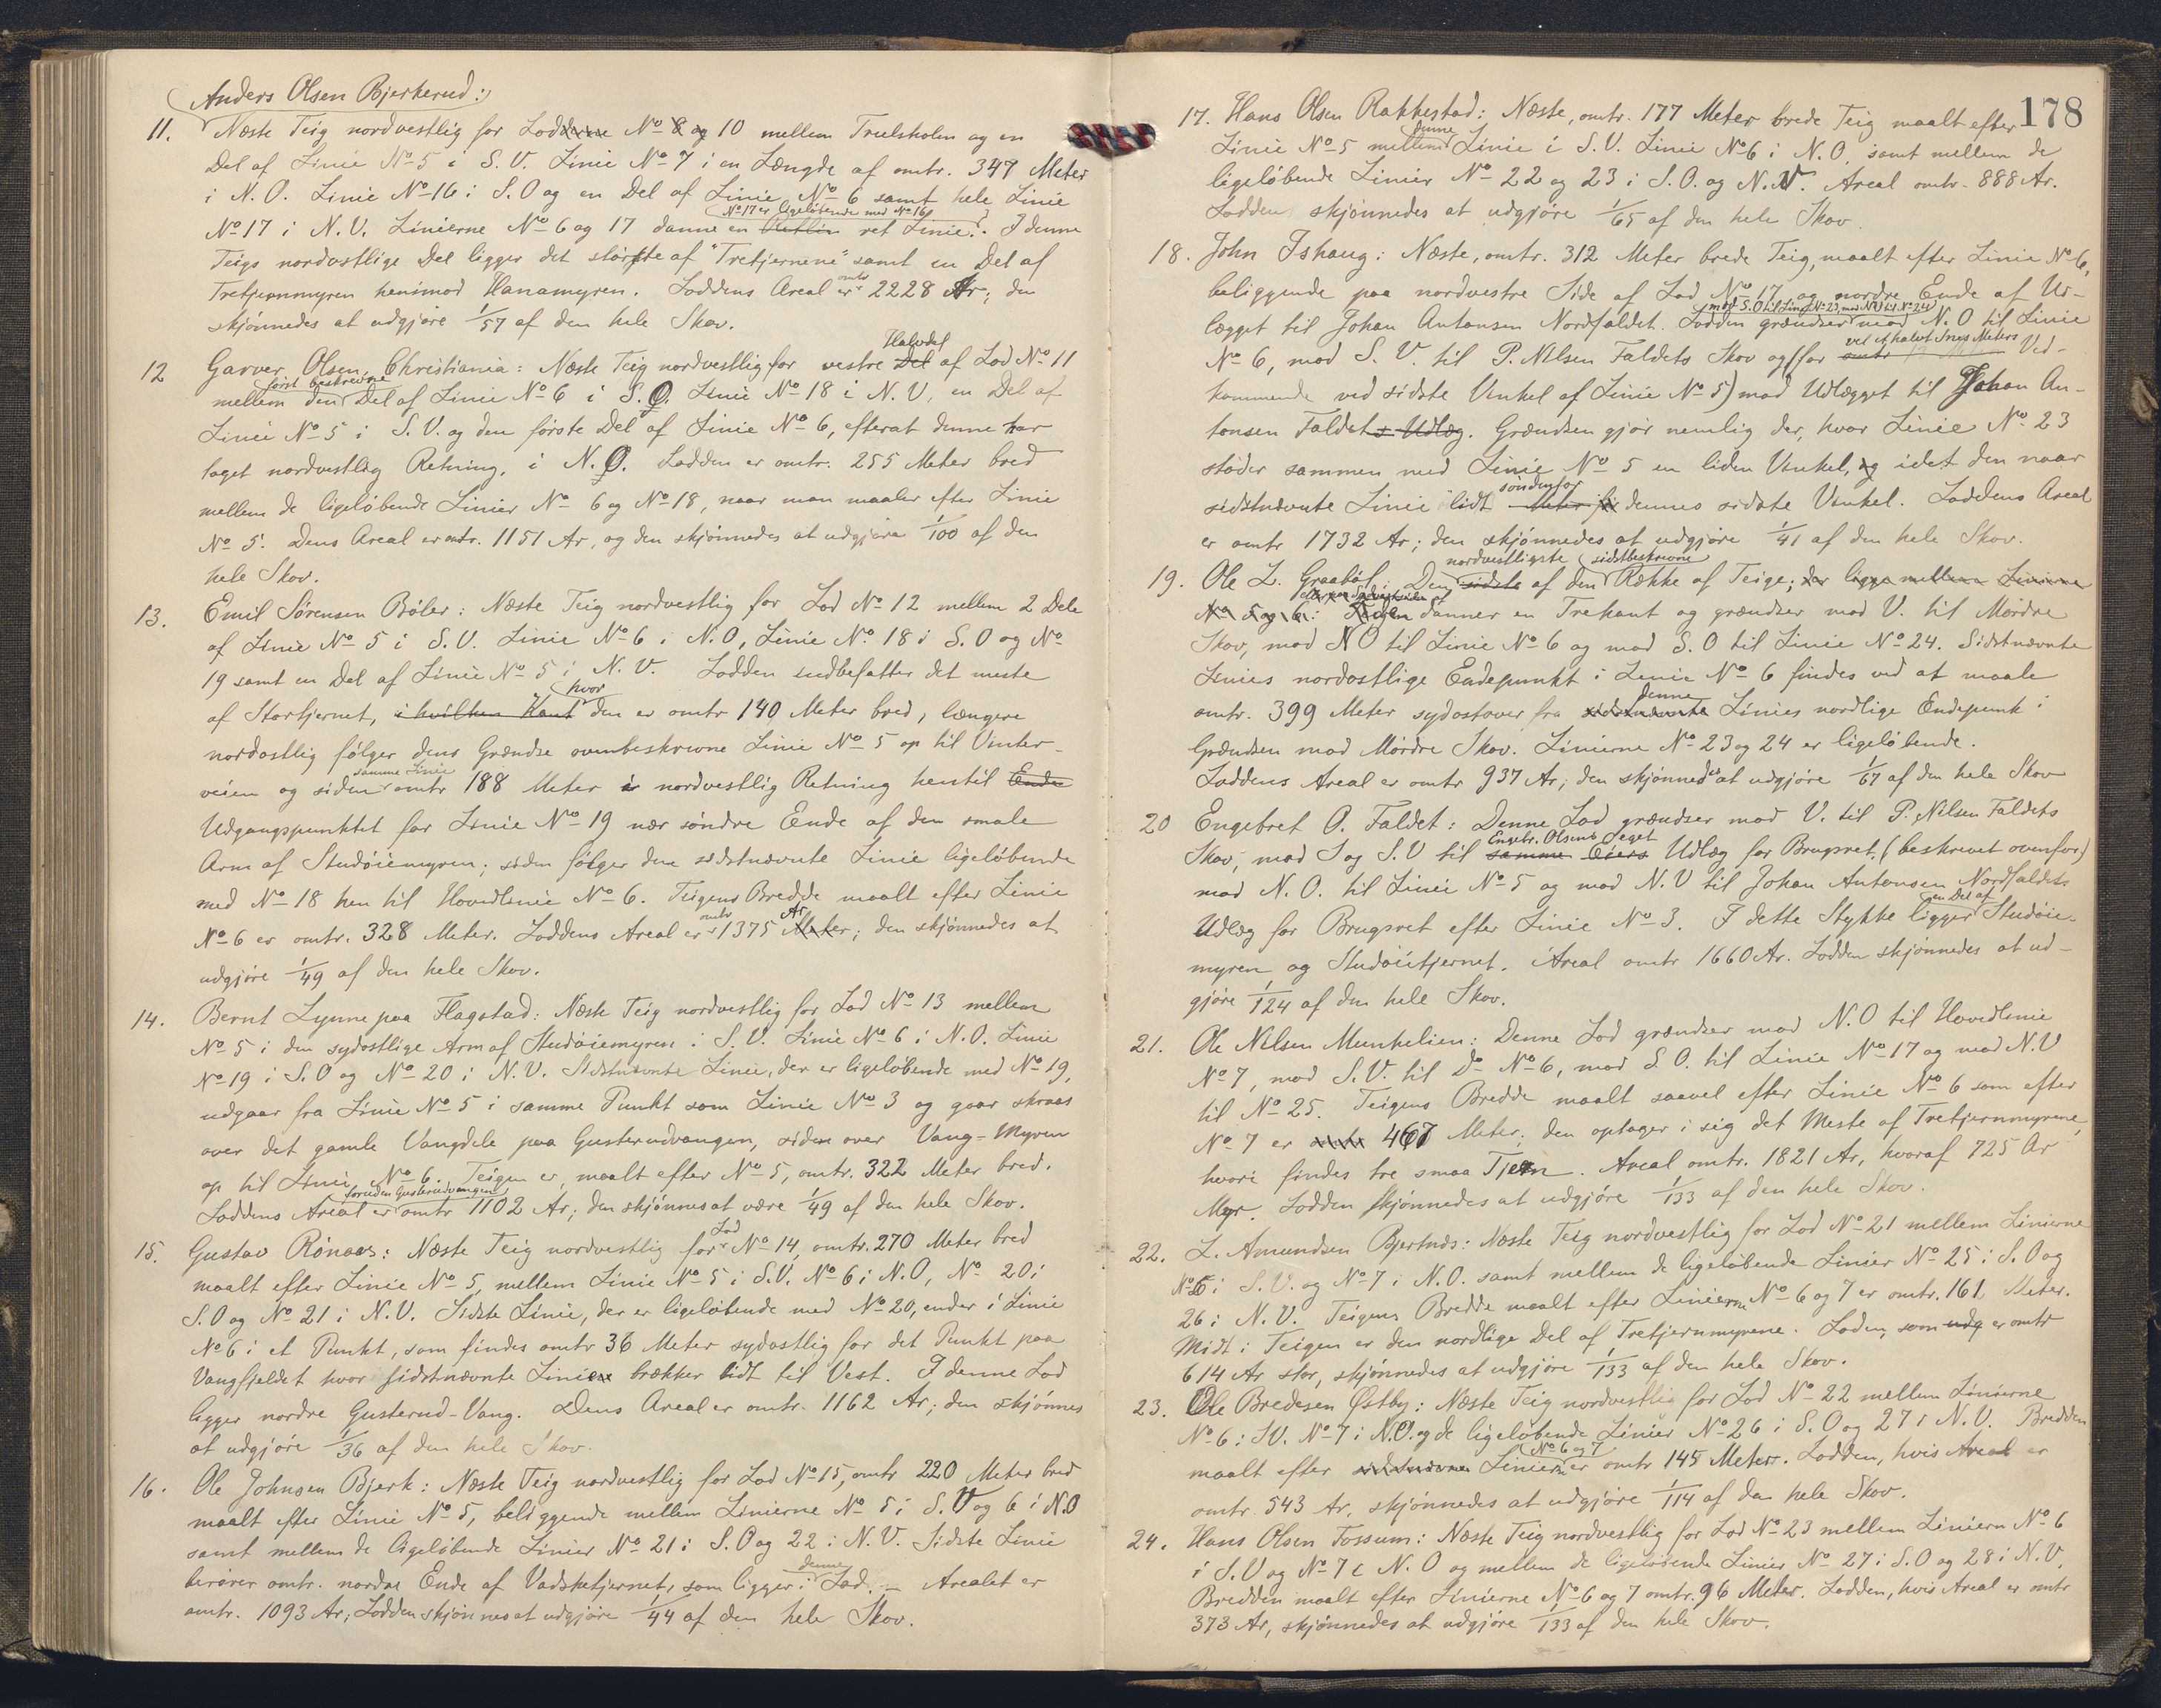 Anders Olsen Bjerkerud:
11. Næste Teig nordvestlig for Loddene No 8 og 10 mellem Trulsholm og en
Del af Linie No 5 i S. V. Linie No 7 i en Længde af omtr. 349 Meter
i N. O. Linie No 16 i S. O og en Del af Linie No 6 samt hele Linie
No 17 er ligeløbende med No 16
No 17 i N. V. Linierne No 6 og 17 danne en ret Linie. I denne
Teigs nordostlige Del ligger det største af "Tretjernene" samt en Del af
Tretjernmyren henimod Hanamyren. Loddens Areal er omtr 2228 Ar; den
skjönnedes at udgjøre 1/57 af den hele Skov.
12 Garver Olsen, Christiania: Næste Teig nordvestlig for vestre Halvdel af Lod No 11
mellem den först beskrevne Del af Linie No 6 i S. O. Linie No 18 i N. V, en Del af
Linie No 5 i S. V. og den første Del af Linie No 6, efterat denne har
taget nordvestlig Retning, i N. O. Lodden er omtr. 255 Meter bred
mellem de ligeløbende Linier No 6 og No 18, naar man maaler efter Linie
No 5. Dens Areal er omtr. 1151 Ar, og den skjönnedes at udgjøre 1/100 af den
hele Skov.
13. Emil Sørensen Böler: Næste Teig nordvestlig for Lod No 12 mellem 2 Dele
af Linie No 5 i S. V. Linie No 6 i N. O, Linie No 18 i S. O og No
19 samt en Del af Linie No 5 i N. V. Lodden indbefatter det meste
af Stortjernet, i hvilken Kant hvor den er omtr 140 Meter bred, længere
nordostlig følger dens Grændse ovenbeskrevne Linie No 5 op til Vinter-
veien og siden samme Linie omtr 188 Meter i nordvestlig Retning hentil Ende
Udgangspunktet for Linie No 19 nær söndre Ende af den smale
Arm af Studöiemyren; siden følger den sidstnævnte Linie ligeløbende
med No 18 hen til Hovedlinie No 6. Teigens Bredde maalt efter Linie
No 6 er omtr. 328 Meter. Loddens Areal er omtr 1375 Ar; den skjönnedes at
udgjøre 1/49 af den hele Skov.
14. Bernt Lynne paa Flagstad: Næste Teig nordvestlig for Lod No 13 mellem
No 5 i den sydostlige Arm af Studöiemyren i S. V. Linie No 6 i N. O. Linie
No 19 i S. O og No 20 i N. V. Sidstnævnte Linie, der er ligeløbende med No 19,
udgaar fra Linie No 5 i samme Punkt som Linie No 3 og gaar skraas
over det gamle Vangdele paa Gusterudvangen, siden over Vang-Myren
op til Linie No 6. Teigen er, maalt efter No 5, omtr. 322 Meter bred.
Loddens Areal er foruden Gusterudvangen omtr 1102 Ar; den skjönnes at være 1/49 af den hele Skov.
15. Gustav Rönaas: Næste Teig nordvestlig for Lod No 14, omtr. 270 Meter bred
maalt efter Linie No 5, mellem Linie No 5 i S.V. No 6 i N. O, No 20 i
S. O og No 21 i N. V. Sidste Linie, der er ligeløbende med No 20, ender i Linie
No 6 i et Punkt, som findes omtr 36 Meter sydostlig for det Punkt paa
Vangfjeldet hvor sidstnævnte Linie brækker lidt til Vest. I denne Lod
ligger nordre Gusterud-Vang. Dens Areal er omtr. 1162 Ar; den skjönnes
at udgjöre 1/36 af den hele Skov.
16. Ole Johnsen Bjerk: Næste Teig nordvestlig for Lod No 15, omtr 220 Meter bred
maalt efter Linie No 5, beliggende mellem Linierne No 5 i S. V og 6 i N.O
samt mellem de ligeløbende Linier No 21 i S. O og 22 i N. V. Sidste Linie
berører omtr. nordre Ende af Vadsketjernet, som ligger i denne Lod. – Arealet er
omtr. 1093 Ar; Lodden skjönnes at udgjöre 1/44 af den hele Skov.
178
17. Hans Olsen Rakkestad: Næste, omtr. 177 Meter brede Teig maalt efter
Linie No 5 mellem denne Linie i S. V. Linie No 6 i N. O. samt mellem de
ligeløbende Linier No 22 og 23 i S. O. og N. V. Areal omtr. 888 Ar.
Lodden skjönnedes at udgjöre 1/65 af den hele Skov.
18. John Ishaug: Næste, omtr. 312 Meter brede Teig, maalt efter Linie No 6,
beliggende paa nordvestre Side af Lod No 17 og nordre Ende af Ud-
mod S. O til Linie No 23, mod N V til No 24
lægget til Johan Antonsen Nordfaldet. Lodden grændser mod N. O til Linie
No 6, mod S. V. til P. Nilsen Faldets Skov og (for omtr ved et halvt Snes Meters Ved-
kommende ved sidste Vinkel af Linie No 5) mod Udlægget til Johan An-
tonsen Faldets Udlæg. Grændsen gjør nemlig der, hvor Linie No 23
støder sammen med Linie No 5 en liden Vinkel, og idet den naar
sidstnævnte Linie lidt söndenfor dennes sidste Vinkel. Loddens Areal
er omtr 1732 Ar; den skjönnedes at udgjöre 1/41 af den hele Skov.
19. Ole L. Graabøl: Den nordvestligste sidste af den sidstbeskrevne Række af Teige; der ligge mellem Linierne
No 5 og 6: Teigen danner en Trekant og grændser mod V. til Mørdre
Skov, mod N O til Linie No 6 og mod S. O til Linie No 24. Sidstnævnte
Linies nordostlige Endepunkt i Linie No 6 findes ved at maale
omtr. 399 Meter sydostover fra sidstnævnte denne Linies nordlige Endepunk i
Grændsen mod Mørdre Skov. Linierne No 23 og 24 er ligeløbende.
Loddens Areal er omtr 937 Ar; den skjönnedes at udgjöre 1/67 af den hele Skov
20 Engebret O. Faldet: Denne Lod grændser mod V. til P. Nilsen Faldets
Skov, mod S og S. V til samme Eiers Engebr. Olsens Eget Udlæg for Brugsret. (beskrevet ovenfor)
mod N. O. til Linie No 5 og mod N. V til Johan Antonsen Nordfaldets
Udlæg for Brugsret efter Linie No 3. I dette Stykke ligger en Del af Studöie-
myren og Studöietjernet. Areal omtr 1660 Ar. Lodden skjönnedes at ud-
gjöre 1/124 af den hele Skov.
21. Ole Nilsen Munkelien: Denne Lod grændser mod N. O til Hovedlinie
No 7, mod S. V. til Do No 6, mod S. O. til Linie No 17 og mod N. V
til No 25. Teigens Bredde maalt saavel efter Linie No 6 som efter
No 7 er omtr 467 Meter; den optager i sig det Meste af Tretjernmyrene,
hvori findes tre smaa Tjern. Areal omtr. 1821 Ar, hvoraf 725 Ar
Myr. Lodden skjönnedes at udgjöre 1/133 af den hele Skov.
22. L. Amundsen Bjertnds: Næste Teig nordvestlig for Lod No 21 mellem Linierne
No 6 i S. V. og No 7 i N. O. samt mellem de ligeløbende Linier No 25 i S. O og
26 i N. V. Teigens Bredde maalt efter Linierne No 6 og 7 er omtr. 161 Meter.
Midt i Teigen er den nordlige Del af Tretjernmyrene. Loden, som udg er omtr
614 Ar stor, skjönnedes at udgjöre 1/133 af den hele Skov.
23. Ole Bredesen Østby: Næste Teig nordvestlig for Lod No 22 mellem Linierne
No 6 i SV. No 7 i N.O. og de ligeløbende Linier No 26 i S. O og 27 i N. V. Bredden
maalt efter sidstnævnte Linierne No 6 og 7 er omtr 145 Meter. Lodden, hvis Areal er
omtr. 543 Ar, skjönnedes at udgjöre 1/114 af den hele Skov.
24. Hans Olsen Fossum: Næste Teig nordvestlig for Lod No 23 mellem Liniern No 6
i S. V og No 7 i N. O og mellem de ligeløbende Linier No 27 i S. O og 28 i N. V.
Bredden maalt efter Linierne No 6 og 7 omtr. 96 Meter. Lodden, hvis Areal er omtr
373 Ar, skjönnedes at udgjöre 1/133 af den hele Skov.